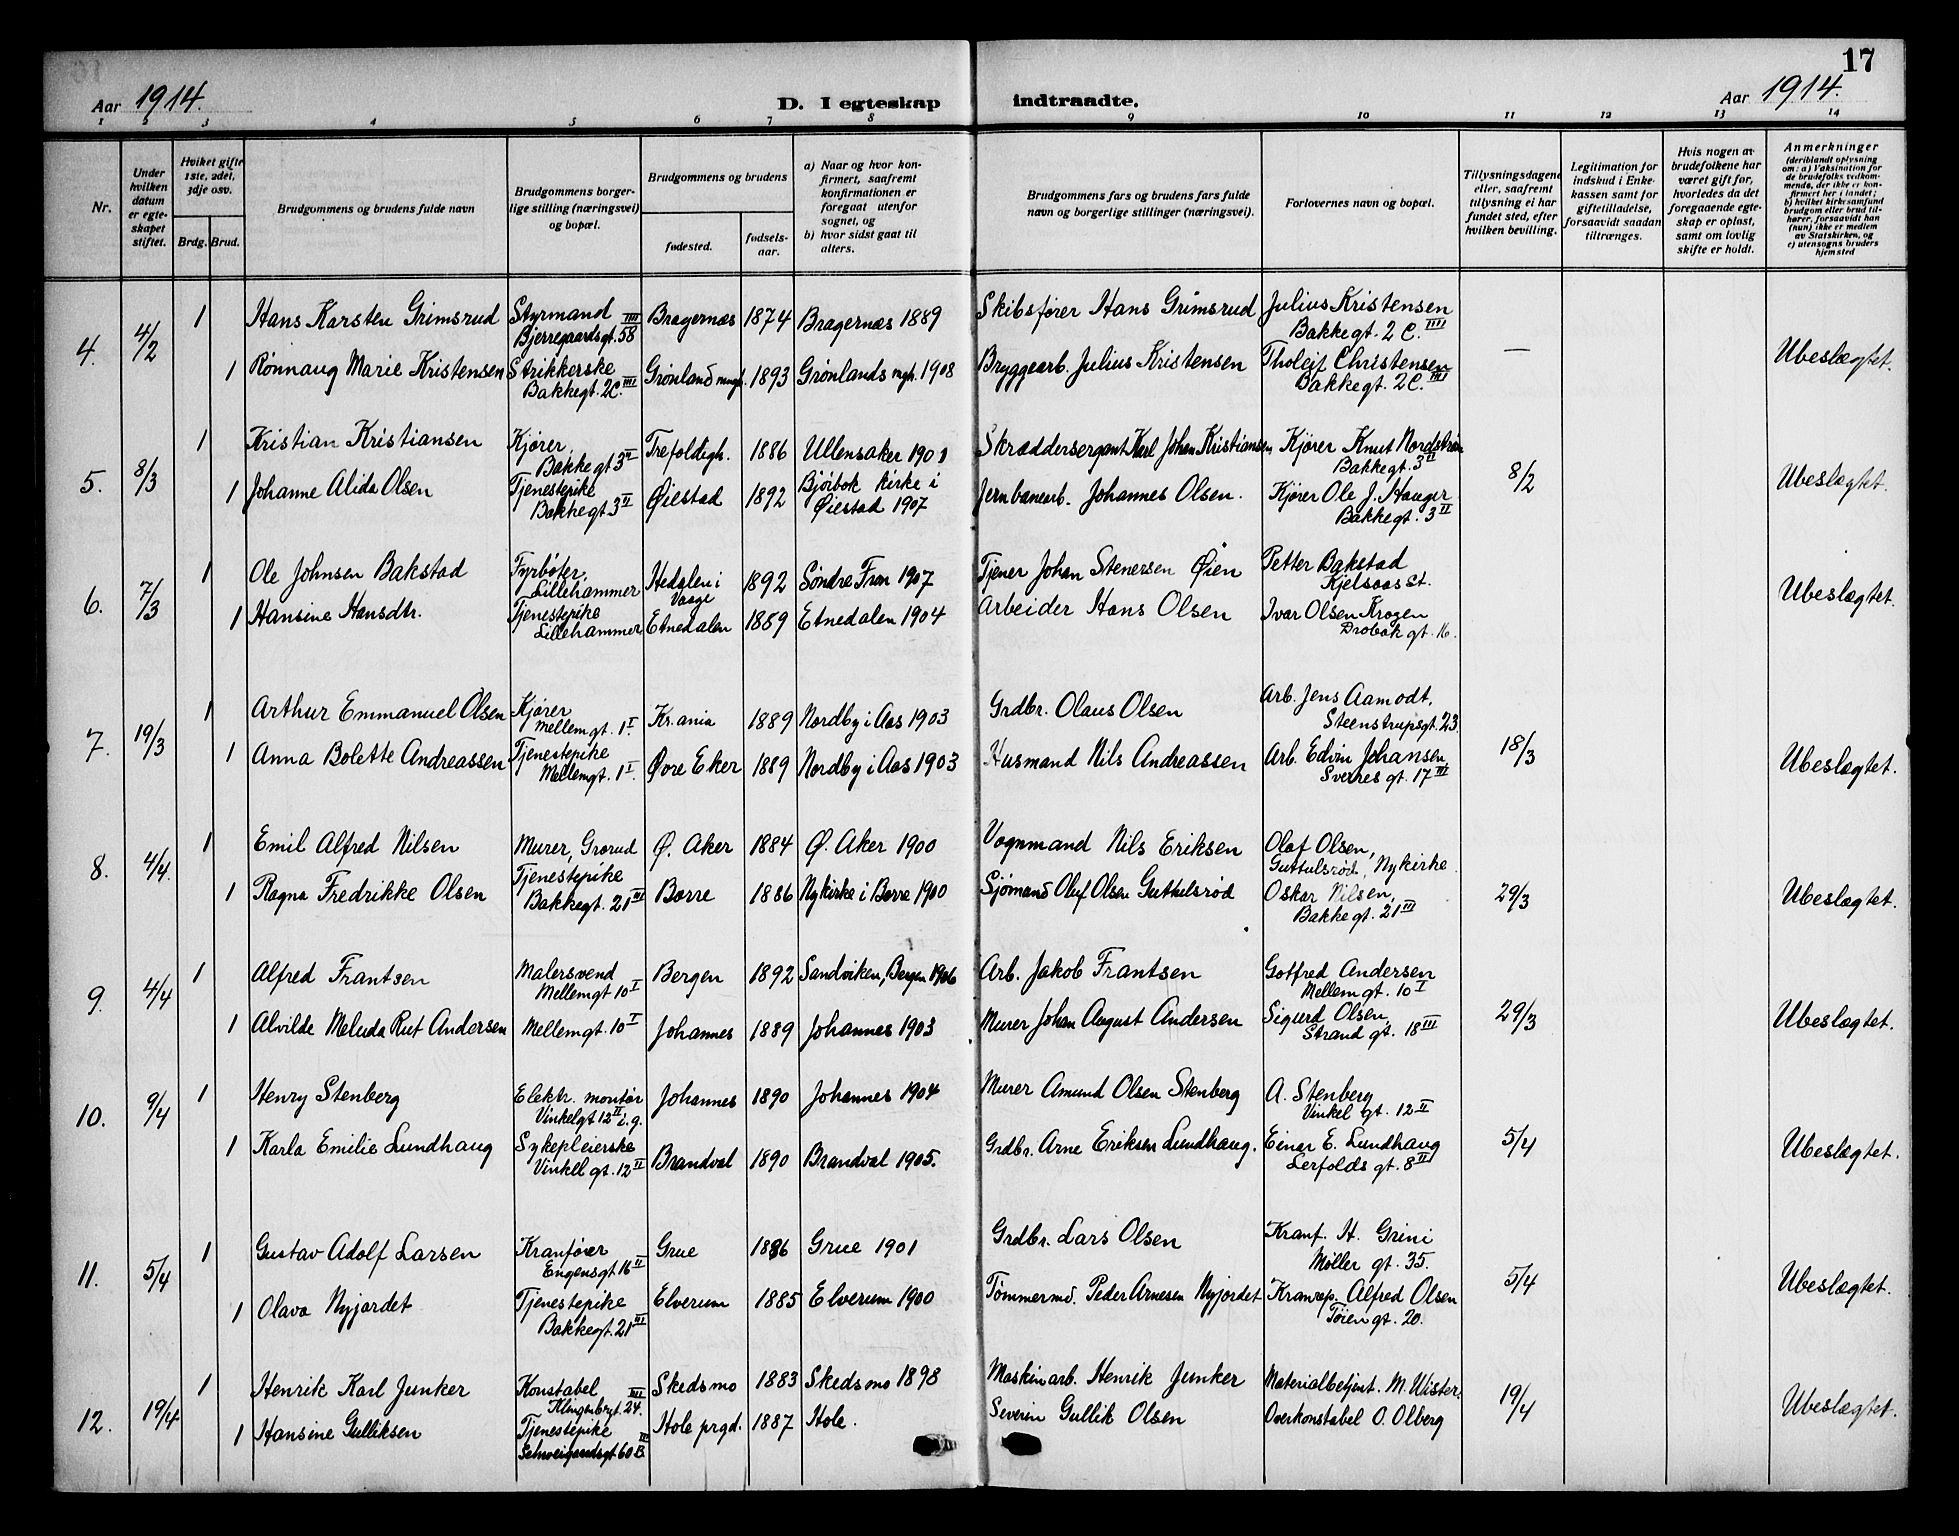 17
Aar 1914. D. I egteskap indtraadte. Aar 1914.
1 2 3 4 5 6 7 8 9 10 11 12 13 14
Nr.
Under hvilken datum er egteskapet stiftet.
Hvilket gifte 1ste, 2det, 3dje osv.
Brdg. Brud.
Brudgommens og brudens fulde navn
Brudgommens borgerlige stilling (næringsvei) og bopæl.
Brudgommens og brudens
fødested.
fødselsaar.
a) Naar og hvor konfirmert, saafremt konfirmationen er foregaat utenfor sognet, og
b) hvor sidst gaat til alters.
Brudgommens fars og brudens fars fulde navn og borgerlige stillinger (næringsvei).
Forlovernes navn og bopæl.
Tillysningsdagene eller, saafremt tillysning ei har fundet sted, efter hvilken bevilling.
Legitimation for indskud i Enkekassen samt for giftetilladelse, forsaavidt saadan tiltrænges.
Hvis nogen av brudefolkene har været gift før, hvorledes da det foregaaende egteskap er opløst, samt om lovlig skifte er holdt.
Anmerkninger (deriblandt oplysning om: a) Vaksination for de brudefolks vedkommende, der ikke er konfirmert her i landet; b) hvilket kirkesamfund brudgom eller brud tilhører, forsaavidt han (hun) ikke er medlem av Statskirken, og c) utensogns bruders hjemsted
4. 4/2 1 Hans Karsten Grimsrud Styrmand Bjerregaardsgt. 58 IIII Bragernæs 1874 Bragernæs 1889 Skibsfører Hans Grimsrud Julius Kristensen Bakkegt. 2 C. IIII —
1 Rønnaug Marie Kristensen Strikkerske Bakkegt. 2C. IIII Grønland mngh. 1893 Grønlands mgh. 1908 Bryggearb. Julius Kristensen Tholeif Christensen Bakkegt. 2C. IIII Ubeslægtet.
5. 8/3 1 Kristian Kristiansen Kjører, Bakkegt 3 II Trefoldigh. 1886 Ullensaker 1901 Skræddersergant Karl Johan Kristiansen Kjører Knut Nordstrøm Bakkegt. 3 II 8/2
1 Johanne Alida Olsen Tjenestepike Bakkegt 3 II Øiestad 1892 Bjöibok kirke i Øiestad 1907 Jernbanearb. Johannes Olsen. Kjører Ole J. Hauger Bakkegt. 3 II Ubeslægtet.
6. 7/3 1 Ole Johnsen Bakstad Fyrbøter, Lillehammer Hedalen i Vaage 1892 Søndre Fron 1907 Tjener Johan Stenersen Øien Petter Bakstad Kjelsaas St.
1 Hansine Hansdtr. Tjenestepike Lillehammer Etnedalen 1889 Etnedalen 1904 Arbeider Hans Olsen Ivar Olsen Krogen Drøbak gt. 16. Ubeslægtet.
7. 19/3 1 Arthur Emmanuel Olsen Kjører Mellemgt. 1 I Kr.ania 1889 Nordby i Aas 1903 Grdbr. Olaus Olsen Arb. Jens Aamodt, Steenstrupsgt. 23. 18/3
1 Anna Bolette Andreassen Tjenestepike Mellemgt. 1 I. Øvre Eker 1889 Nordby i Aas 1903 Husmand Nils Andreassen Arb. Edvin Johansen, Sverres gt. 17 III Ubeslægtet.
8. 4/4. 1 Emil Alfred Nilsen Murer, Grorud Ø. Aker 1884 Ø. Aker 1900 Vognmand Nils Eriksen Olaf Olsen, Guttulsrød, Nykirke
1 Ragna Fredrikke Olsen Tjenestepike Bakkegt. 21 III Borre 1886 Nykirke i Borre 1900 Sjømand Oluf Olsen Guttulsrød Oskar Nilsen, Bakkegt. 21 III 29/3 Ubeslægtet.
9. 4/4 1 Alfred Frantsen Malersvend Mellemgt 10 I Bergen 1892 Sandviken, Bergen 1906 Arb. Jakob Frantsen Gotfred Andersen Mellemgt. 10 I
1 Alvilde Meluda Rut Andersen Mellemgt. 10 I Johannes 1889 Johannes 1903 Murer Johan August Andersen Sigurd Olsen, Strand gt. 18 III 29/3 Ubeslægtet.
10. 9/4 1 Henry Stenberg Elektr. montör Vinkelgt 12 II i. g. Johannes 1890 Johannes 1904 Murer Amund Olsen Stenberg A. Stenberg Vinkel gt. 12 II
1 Karla Emilie Lundhaug Sykepleierske Vinkel gt. 12 II Brandval 1890 Brandval 1905. Grdbr. Arne Eriksen Lundhaug. Einar E. Lundhaug Lerfolds gt. 8 II 5/4 Ubeslægtet.
11. 5/4 1 Gustav Adolf Larsen Kranfører Engensgt 16 II Grue 1886 Grue 1901 Grdbr. Lars Olsen Kranf. H. Grini Møller gt. 35. 5/4
1 Olava Nyjordet Tjenestepike Bakkegt. 21 III Elverum 1885 Elverum 1900 Tømmermd. Peder Arnesen Nyjordet Kranrep. Alfred Olsen Tøien gt. 20. Ubeslægtet.
12. 19/4 1 Henrik Karl Junker Konstabel Klingenbgt. 24. IIII Skedsmo 1883 Skedsmo 1898 Maskinarb. Henrik Junker Materialbetjent. M. Wister. 19/4
1 Hansine Gulliksen Tjenestepike Schweigaardsgt 60 B. III Hole prgd. 1887 Hole. Severin Gullik Olsen Overkonstabel O. Olberg Ubeslægtet.